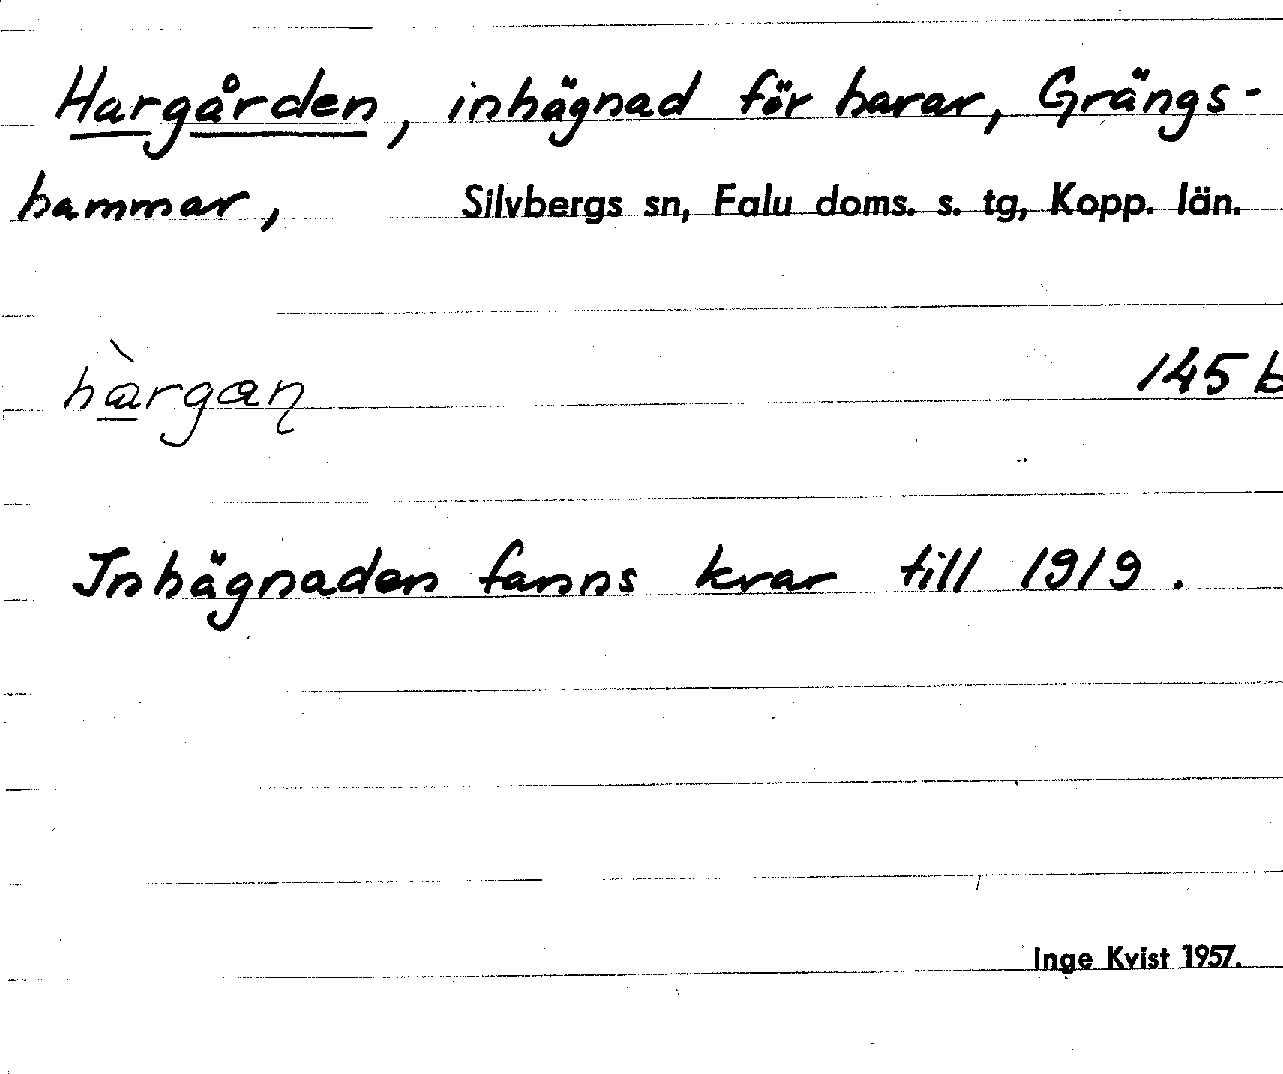 Hargården, inhägnad för harar, Grängs-
hammar, Silvbergs sn, Falu doms. s. tg, Kopp. län.
hàrgan 145 b
Inhägnaden fanns kvar till 1919.
Inge Kvist 1957.